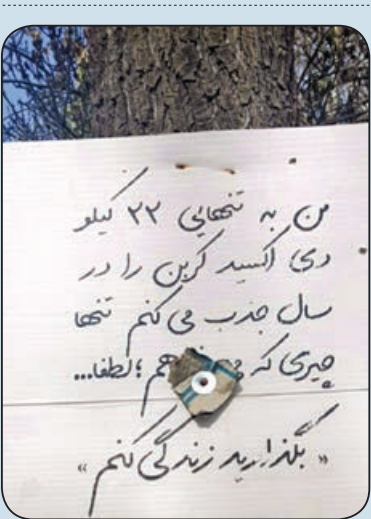 من به تنهایی ۲۲ کیلو
دی اکسید کربن را در
سال جذب می کنم تنها
چیزی که ؛ لطفا...
« بگذارید زندگی کنم »